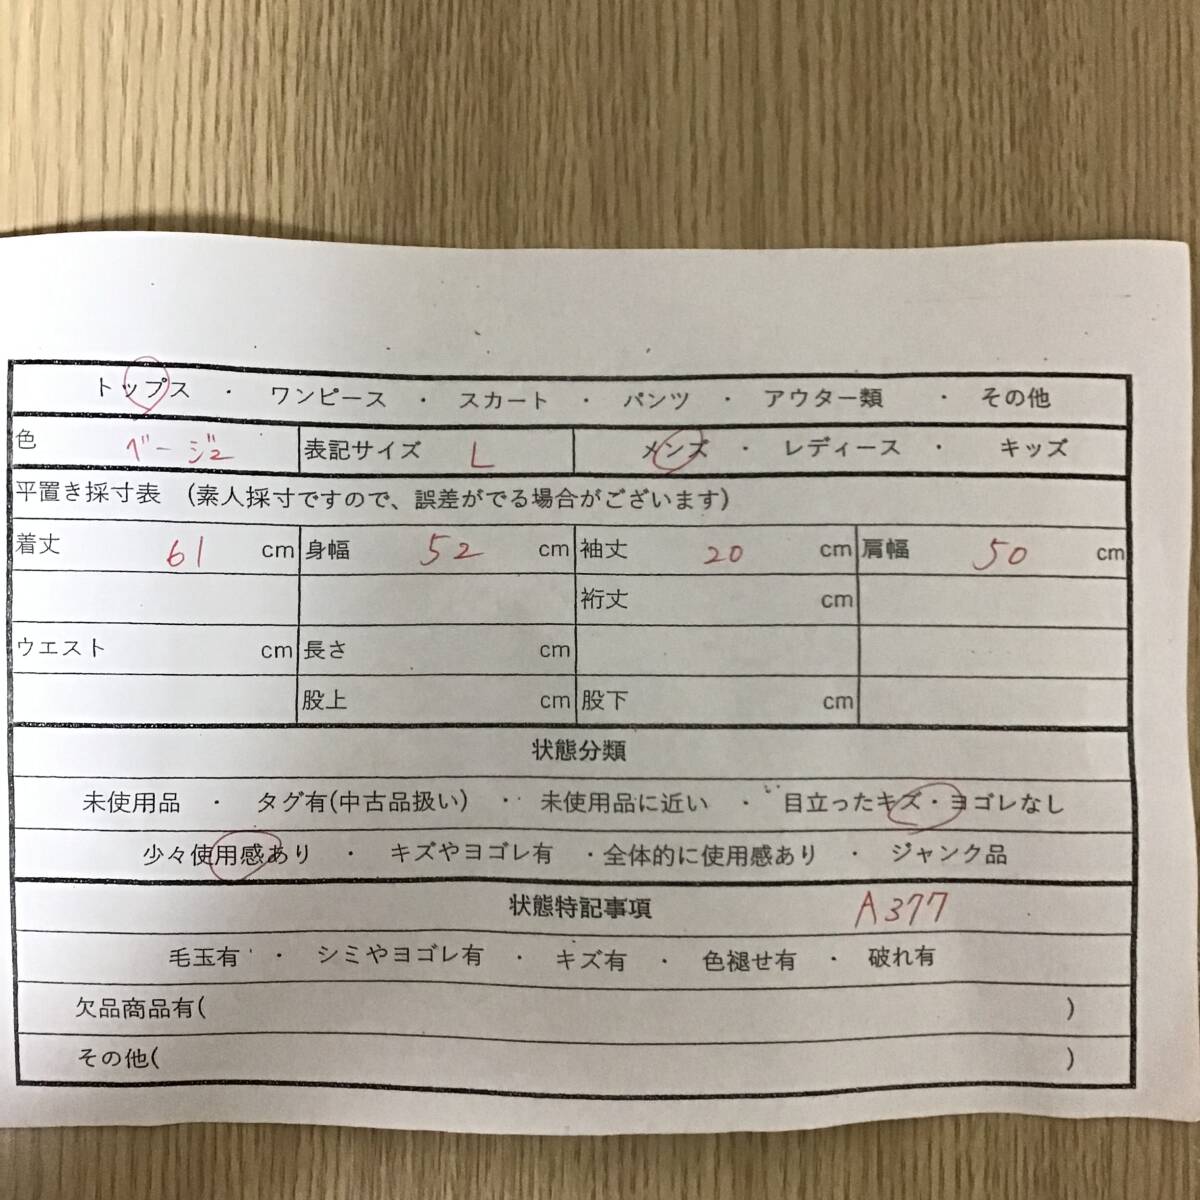 トップス ・ ワンピース ・ スカート ・ パンツ ・ アウター類 ・ その他
色 ベージュ 表記サイズ L メンズ ・ レディース ・ キッズ
平置き採寸表 (素人採寸ですので、誤差がでる場合がございます)
着丈 61 cm 身幅 52 cm 袖丈 20 cm 肩幅 50 cm
裄丈 cm
ウエスト cm 長さ cm
股上 cm 股下 cm
状態分類
未使用品 ・ タグ有(中古品扱い) ・ 未使用品に近い ・ 目立ったキズ・ヨゴレなし
少々使用感あり ・ キズやヨゴレ有 ・全体的に使用感あり ・ ジャンク品
状態特記事項 A377
毛玉有 ・ シミやヨゴレ有 ・ キズ有 ・ 色褪せ有 ・ 破れ有
欠品商品有( )
その他( )